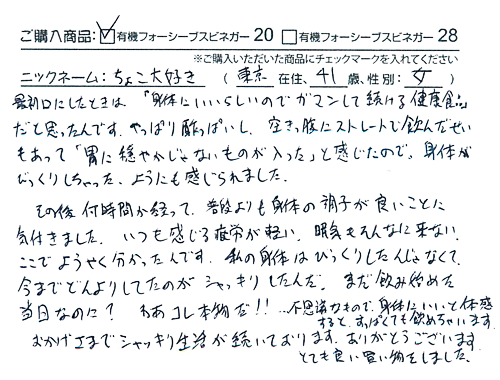 ご購入商品: ☑有機フォーシーブスビネガー20 □有機フォーシーブスビネガー28
※ご購入いただいた商品にチェックマークを入れてください
ニックネーム:ちょこ大好き (東京 在住、41歳、性別:女)
最初口にしたときは「身体にいいらしいのでガマンして続ける健康食品」
だと思ったんです。やっぱり酸っぱいし、空きっ腹にストレートで飲んだせい
もあって「胃に穏やかじゃないものが入った」と感じたので。身体が
びっくりしちゃった、ようにも感じられました。
その後何時間か経って、普段よりも身体の調子が良いことに
気付きました。いつも感じる疲労が軽い、眠気もそんなに来ない。
ここでようやく分かったんです。私の身体はびっくりしたんじゃなくて、
今までどんよりしてたのがシャッキリしたんだ。まだ飲み始めた
当日なのに?わあコレ本物だ!!…不思議なもので、身体にいいと体感
すると、すっぱくても飲めちゃいます。
おかげさまでシャッキリ生活が続いております。ありがとうございます。
とても良い買い物をしました。